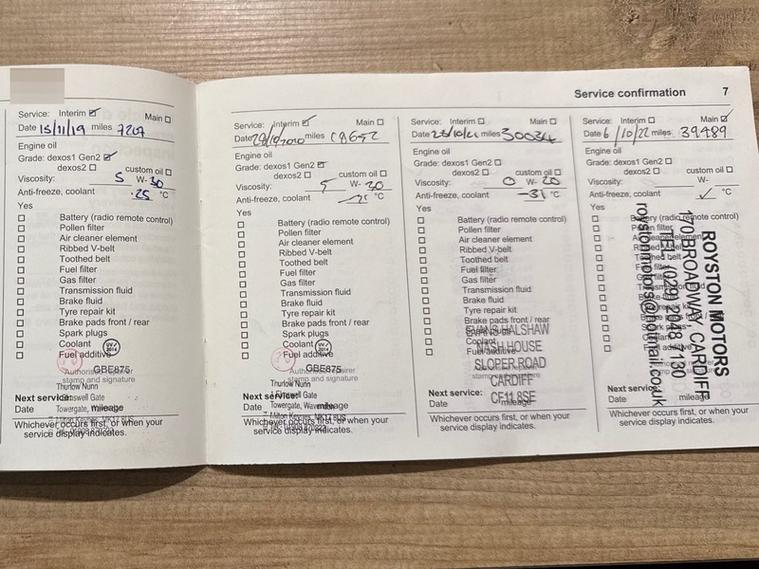 Service confirmation 7
Service: Interim Main
Date 15/11/19 miles 7207
Engine oil
Grade: dexos1 Gen2
dexos2 custom oil
Viscosity: 5 W-30
Anti-freeze, coolant -25 °C
Yes
Battery (radio remote control)
Pollen filter
Air cleaner element
Ribbed V-belt
Toothed belt
Fuel filter
Gas filter
Transmission fluid
Brake fluid
Tyre repair kit
Brake pads front / rear
Spark plugs
Coolant
Fuel additive
GBE875
stamp and signature
Thurlow Nunn
Next service:
Date mileage
Towergate,
Whichever occurs first, or when your
service display indicates.
Service: Interim Main
miles
Engine oil
Grade: dexos1 Gen2
dexos2 custom oil
Viscosity: 5 W-30
Anti-freeze, coolant °C
Yes
Battery (radio remote control)
Pollen filter
Air cleaner element
Ribbed V-belt
Toothed belt
Fuel filter
Gas filter
Transmission fluid
Brake fluid
Tyre repair kit
Brake pads front / rear
Spark plugs
Coolant
Fuel additive
GBE875
stamp and signature
Thurlow Nunn
Next service:
Date mileage
Towergate,
Whichever occurs first, or when your
service display indicates.
Service: Interim Main
Date miles 30034
Engine oil
Grade: dexos1 Gen2
dexos2 custom oil
Viscosity: 0 W-20
Anti-freeze, coolant -31 °C
Yes
Battery (radio remote control)
Pollen filter
Air cleaner element
Ribbed V-belt
Toothed belt
Fuel filter
Gas filter
Transmission fluid
Brake fluid
Tyre repair kit
Brake pads front / rear
EVANS HALSHAW
Coolant
NASH HOUSE
Fuel additive
SLOPER ROAD
CARDIFF
CF11 8SE
Next service:
Date mileage
Whichever occurs first, or when your
service display indicates.
Service: Interim Main
Date 6/10/22 miles 39489
Engine oil
Grade: dexos1 Gen2
dexos2 custom oil
Viscosity: W-
Anti-freeze, coolant °C
Yes
Battery (radio remote control)
ROYSTON MOTORS
170 BROADWAY CARDIFF
roystonmotors@hotmail.co.uk
Next service:
Date mileage
Whichever occurs first, or when your
service display indicates.